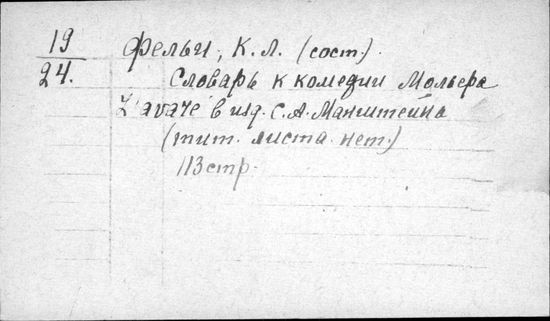 19
24.
Фельи, К. Л. (сост.)
Словарь к комедии Мольера
L'avare в изд. С. А. Манштейна
(тит. листа нет.)
113 стр.